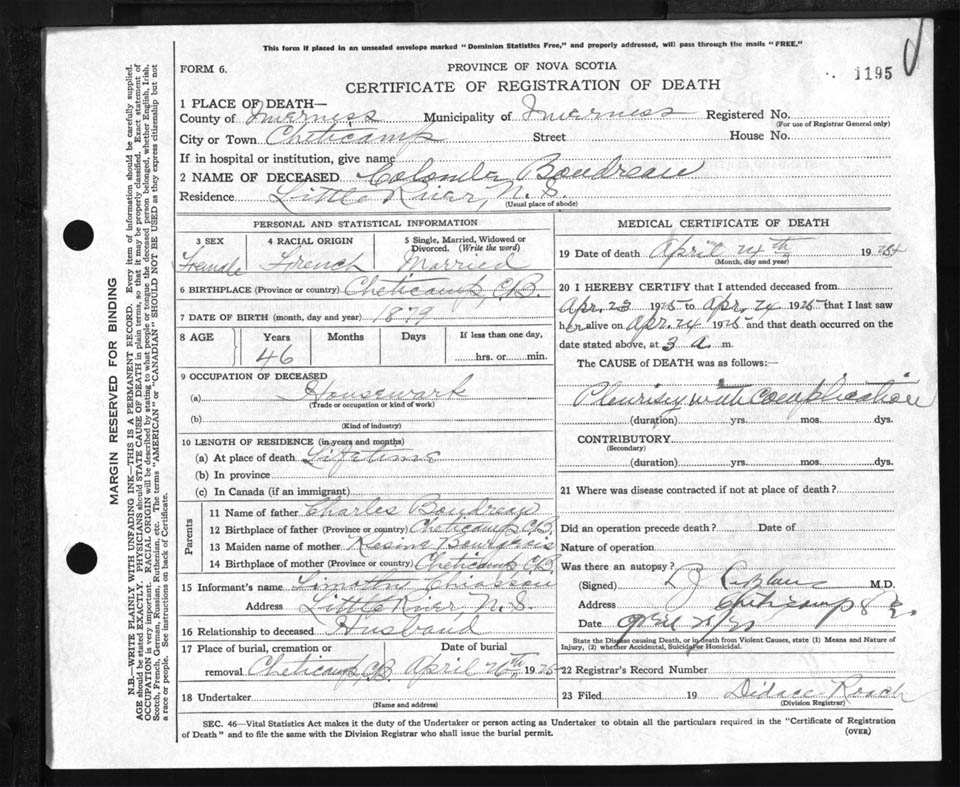 This form if placed in an unsealed envelope marked "Dominion Statistics Free," and properly addressed, will pass through the mails "FREE."
FORM 6.
PROVINCE OF NOVA SCOTIA
1195
CERTIFICATE OF REGISTRATION OF DEATH
1 PLACE OF DEATH—
County of Inverness Municipality of Inverness Registered No.
(For use of Registrar General only)
City or Town Cheticamp Street House No.
If in hospital or institution, give name
2 NAME OF DECEASED Colombe Boudreau
Residence Little River, N.S.
(Usual place of abode)
PERSONAL AND STATISTICAL INFORMATION
3 SEX 4 RACIAL ORIGIN 5 Single, Married, Widowed or Divorced. (Write the word)
Female French Married
6 BIRTHPLACE (Province or country) Cheticamp, C.B.
7 DATE OF BIRTH (month, day and year) 1879
8 AGE Years Months Days If less than one day,
46 hrs. or min.
9 OCCUPATION OF DECEASED
(a) Housework
(Trade or occupation or kind of work)
(b)
(Kind of industry)
10 LENGTH OF RESIDENCE (in years and months)
(a) At place of death Lifetime
(b) In province
(c) In Canada (if an immigrant)
Parents
11 Name of father Charles Boudreau
12 Birthplace of father (Province or country) Cheticamp C.B.
13 Maiden name of mother Bourgeois
14 Birthplace of mother (Province or country) Cheticamp C.B.
15 Informant's name Timothy Chiasson
Address Little River, N.S.
16 Relationship to deceased Husband
17 Place of burial, cremation or Date of burial
removal Cheticamp, C.B April 26th, 1925
18 Undertaker
(Name and address)
MEDICAL CERTIFICATE OF DEATH
19 Date of death April 24th, 192
(Month, day and year)
20 I HEREBY CERTIFY that I attended deceased from
Apr. 23 1925 to Apr. 24 1925 that I last saw
her alive on Apr. 24 1925 and that death occurred on the
date stated above, at 3 a. m.
The CAUSE OF DEATH was as follows:—
Pleurisy with complication
(duration) yrs. mos. dys.
CONTRIBUTORY
(Secondary)
(duration) yrs. mos. dys.
21 Where was disease contracted if not at place of death?
Did an operation precede death? Date of
Nature of operation
Was there an autopsy?
(Signed) M.D.
Address Cheticamp
Date
State the Disease causing Death, or in death from Violent Causes, state (1) Means and Nature of
Injury, (2) whether Accidental, Suicidal or Homicidal.
22 Registrar's Record Number
23 Filed 19 Didace Roach
(Division Registrar)
SEC. 46—Vital Statistics Act makes it the duty of the Undertaker or person acting as Undertaker to obtain all the particulars required in the "Certificate of Registration
of Death" and to file the same with the Division Registrar who shall issue the burial permit.
(OVER)
MARGIN RESERVED FOR BINDING
N.B.—WRITE PLAINLY WITH UNFADING INK—THIS IS A PERMANENT RECORD. Every item of information should be carefully supplied.
AGE should be stated EXACTLY. PHYSICIANS should STATE CAUSE OF DEATH in plain terms, so that it may be properly classified. Exact statement of
OCCUPATION is very important. RACIAL ORIGIN will be described by stating to what people or tongue the deceased person belonged, whether English, Irish,
Scotch, French, German, Russian, Ruthenian, etc. The terms "AMERICAN" or "CANADIAN" SHOULD NOT BE USED as they express citizenship but not
a race or people. See instructions on back of Certificate.